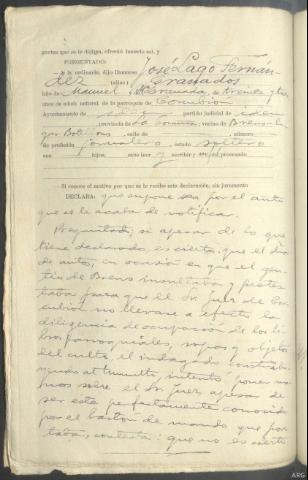 guntas que se le dirijan, ofreció hacerlo así, y
PREGUNTADO:
a lo ordinario, dijo llamarse José Lago Fernán-
dez (alias) Granados
hijo de Manuel y de Granada, de treinta y tres
años de edad, natural de la parroquia de Corcubión
Ayuntamiento de idem partido judicial de idem
provincia de La Coruña; vecino de Brens lu-
gar Bolillons, calle de , número
de profesión jornalero, estado soltero
hijos, sabe leer y escribir y no procesado
Si conoce el motivo por que se le recibe esta declaración, sin juramento
DECLARA: que supone sea por el auto
que se le acaba de notificar.
Preguntado; si apesar de lo que
tiene declarado, es cierto que el día
de autos, en ocasión en que el gen-
tío de Brens insultaba y protes-
taba para que el Sr. Juez de Cor-
cubión no llevare a efecto la
diligencia de ocupación de los li-
bros parroquiales, ropas y objetos
del culto, el indagado contribu-
yendo al tumulto, intentó poner ma-
nos sobre el Sr. Juez, apesar de
ser este perfectamente conocido
por el bastón de mando que por-
taba, contesta: que no es cierto
ARG